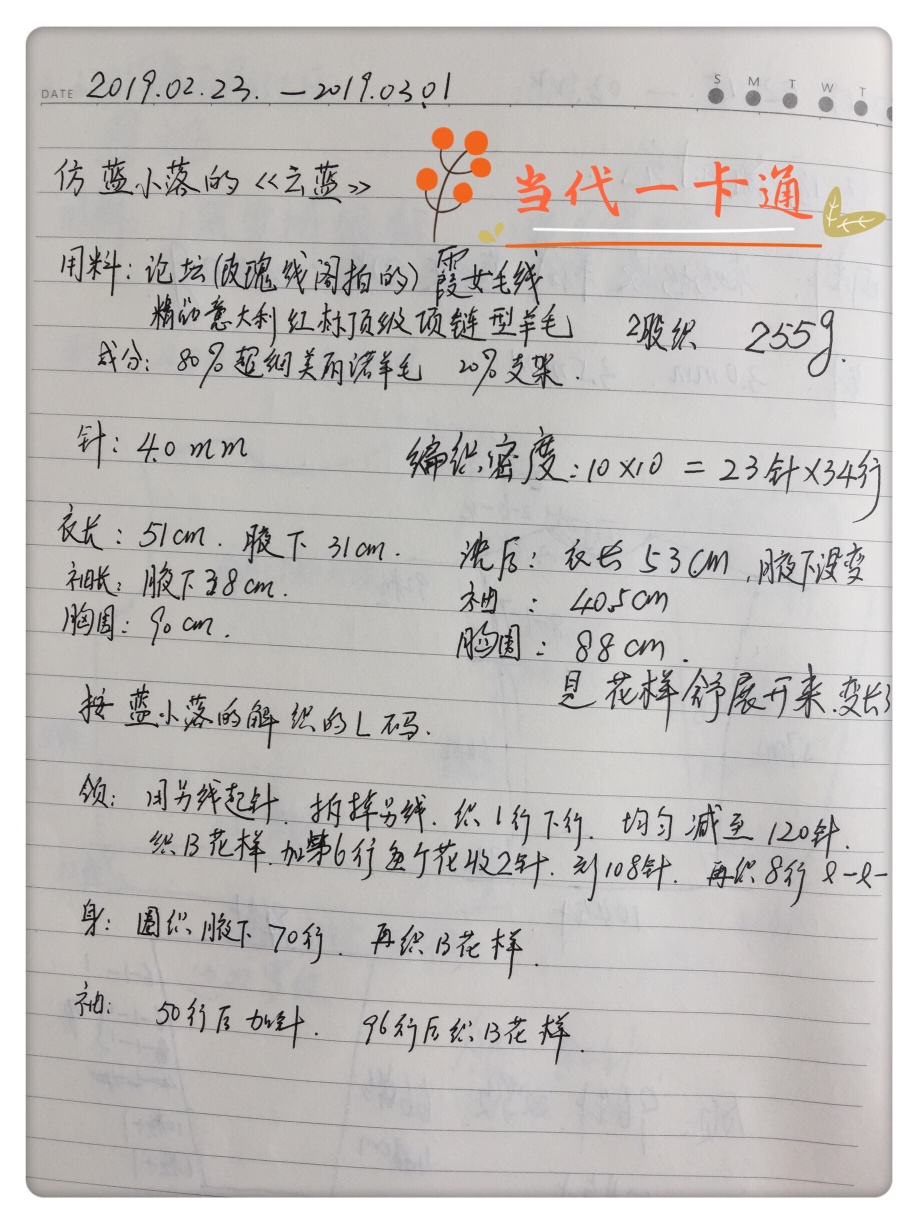 DATE 2019.02.23.—2019.03.01
S M T W T
仿蓝小落的《云蓝》
当代一卡通
用料：论坛(玫瑰线阁拍的)霞女毛线
精纺意大利红标顶级项链型羊毛 2股织 255g.
成分：80%超细美丽诺羊毛 20%支架.
针：4.0mm 编织密度：10×10=23针×34行
衣长：51cm. 腋下31cm.
袖长：腋下38cm.
胸围：90cm.
洗后：衣长53cm，腋下没变
袖：40.5cm
胸围：88cm.
是花样舒展开来.变长了
按蓝小落的解织的L码.
领：用另线起针.拆掉另线.织1行下行.均匀减至120针.
织B花样.加第6行每个花收2针.到108针.再织8行
身：圈织腋下70行.再织B花样.
袖：50行后加针.96行后织B花样.